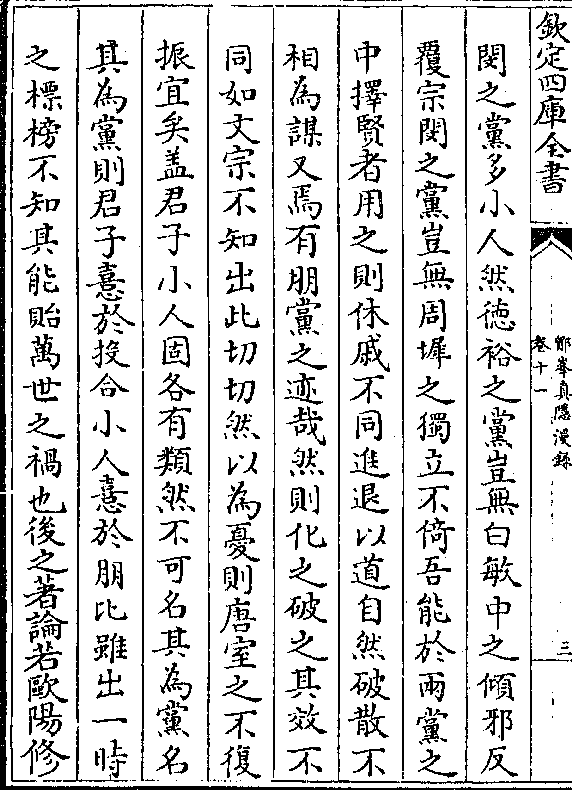 欽定四庫全書
鄮峯真隱漫録
卷十一
三
閔之黨多小人然徳裕之黨豈無白敏中之傾邪反
覆宗閔之黨豈無周墀之獨立不倚吾能於兩黨之
中擇賢者用之則休戚不同進退以道自然破散不
相為謀又焉有朋黨之迹哉然則化之破之其效不
同如文宗不知出此切切然以為憂則唐室之不復
振宜矣盖君子小人固各有類然不可名其為黨名
其為黨則君子憙於投合小人憙於朋比雖出一時
之標榜不知其能貽萬世之禍也後之著論若歐陽修